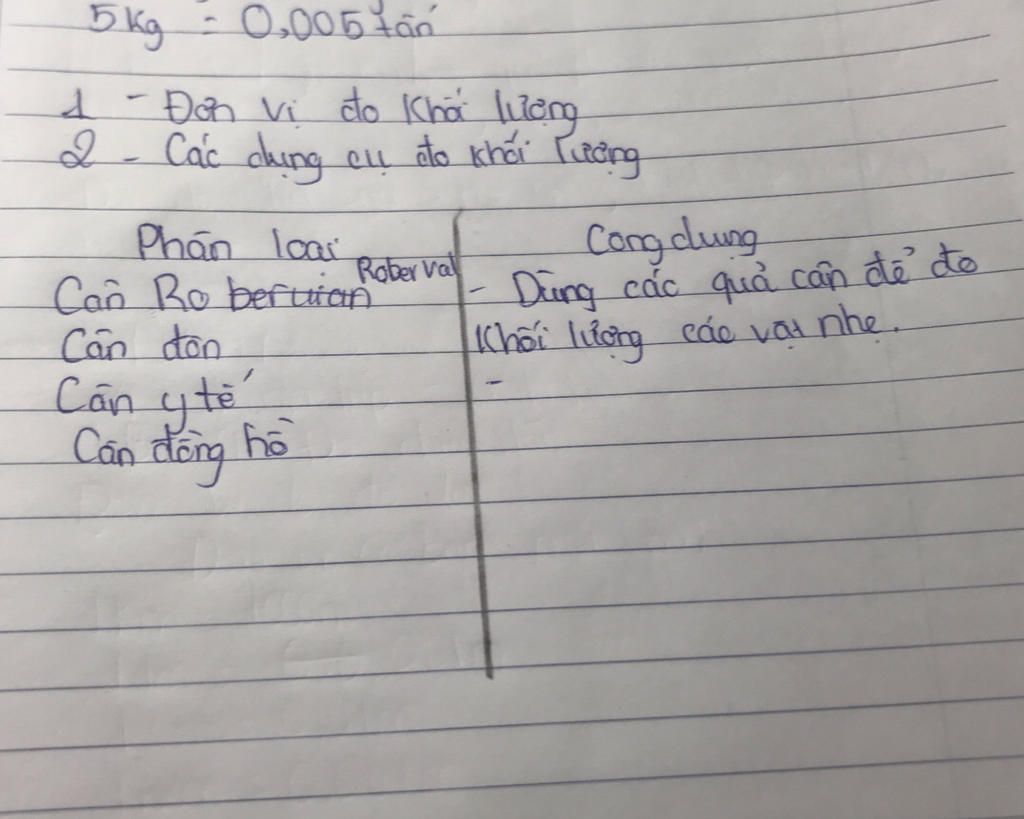 5kg = 0,005 tấn
1 - Đơn vị đo khối lượng
2 - Các dụng cụ đo khối lượng
Phân loại
Công dụng
Cân Ro beruian Roberval
- Dùng các quả cân để đo
khối lượng các vật nhẹ.
Cân đòn
Cân y tế
-
Cân đồng hồ